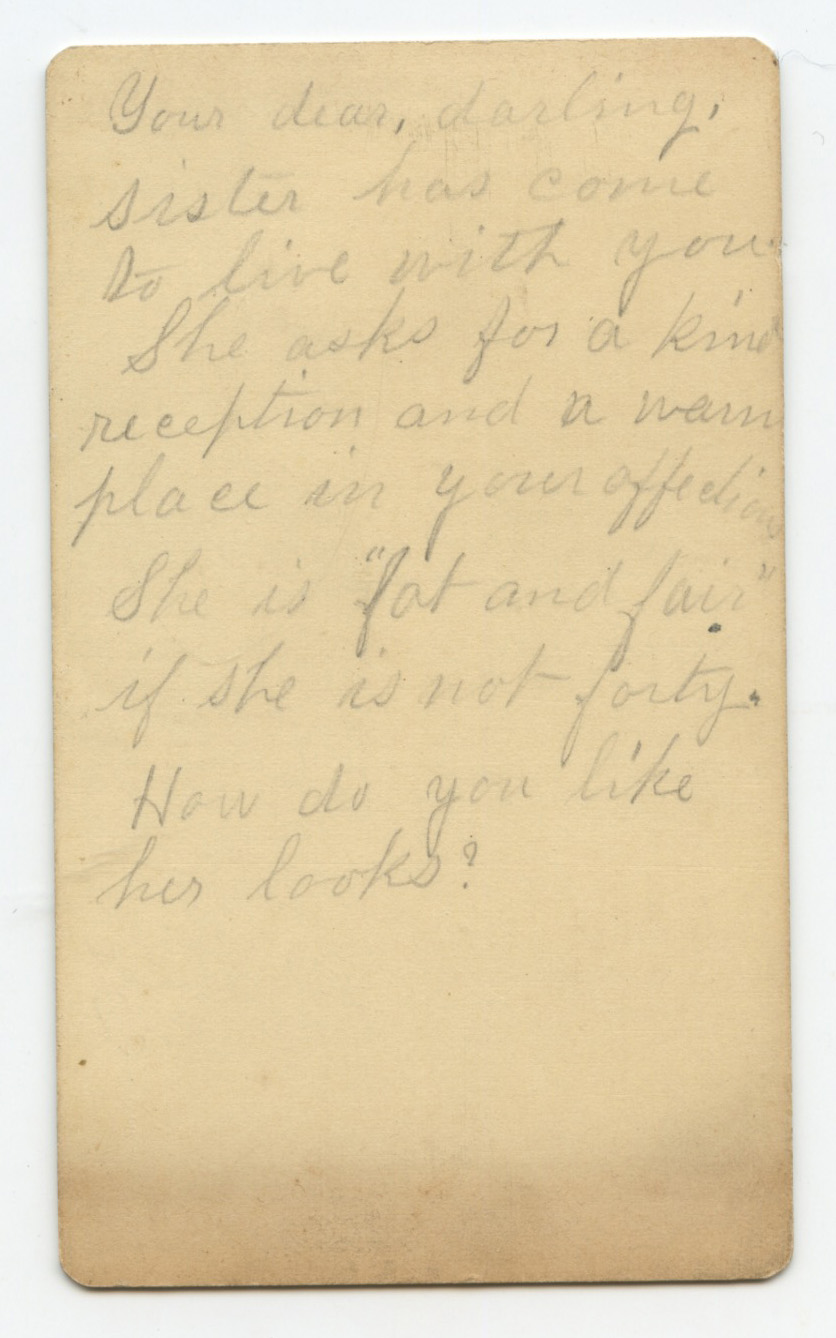 Your dear, darling,
sister has come
to live with you.
She asks for a kind
reception and a warm
place in your affections
She is "fat and fair"
if she is not forty.
How do you like
her looks?